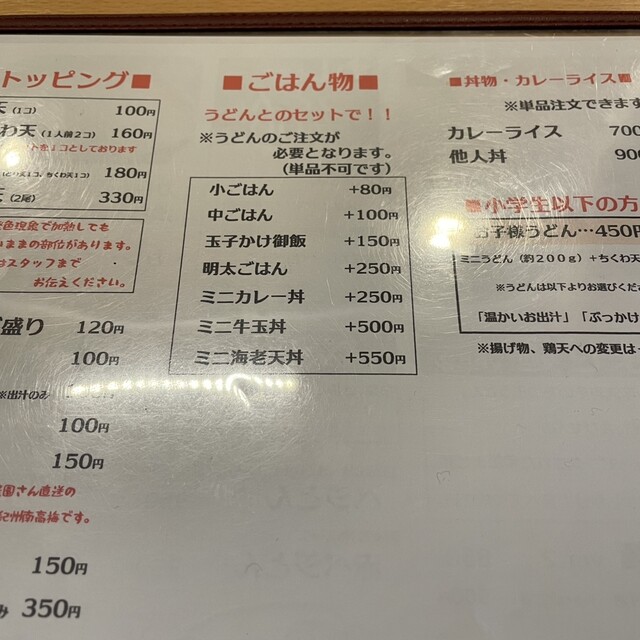 トッピング■
(1コ) 100円
わ天 (1人前2コ) 160円
1コとしております
ちくわ天1コ) 180円
(2尾) 330円
で加熱しても
ままの部位があります。
スタッフまで
お伝えください。
盛り 120円
100円
※出汁のみ
100円
150円
園さん直送の
紀州南高梅です。
150円
み 350円
■ごはん物■
うどんとのセットで!!
※うどんのご注文が
必要となります。
(単品不可です)
小ごはん +80円
中ごはん +100円
玉子かけ御飯 +150円
明太ごはん +250円
ミニカレー丼 +250円
ミニ牛玉丼 +500円
ミニ海老天丼 +550円
■丼物・カレーライス■
※単品注文できます
カレーライス 700
他人丼 900
■小学生以下の方
お子様うどん…450円
ミニうどん (約200g) +ちくわ天
※うどんは以下よりお選びくだ
「温かいお出汁」「ぶっかけ
※揚げ物、鶏天への変更は